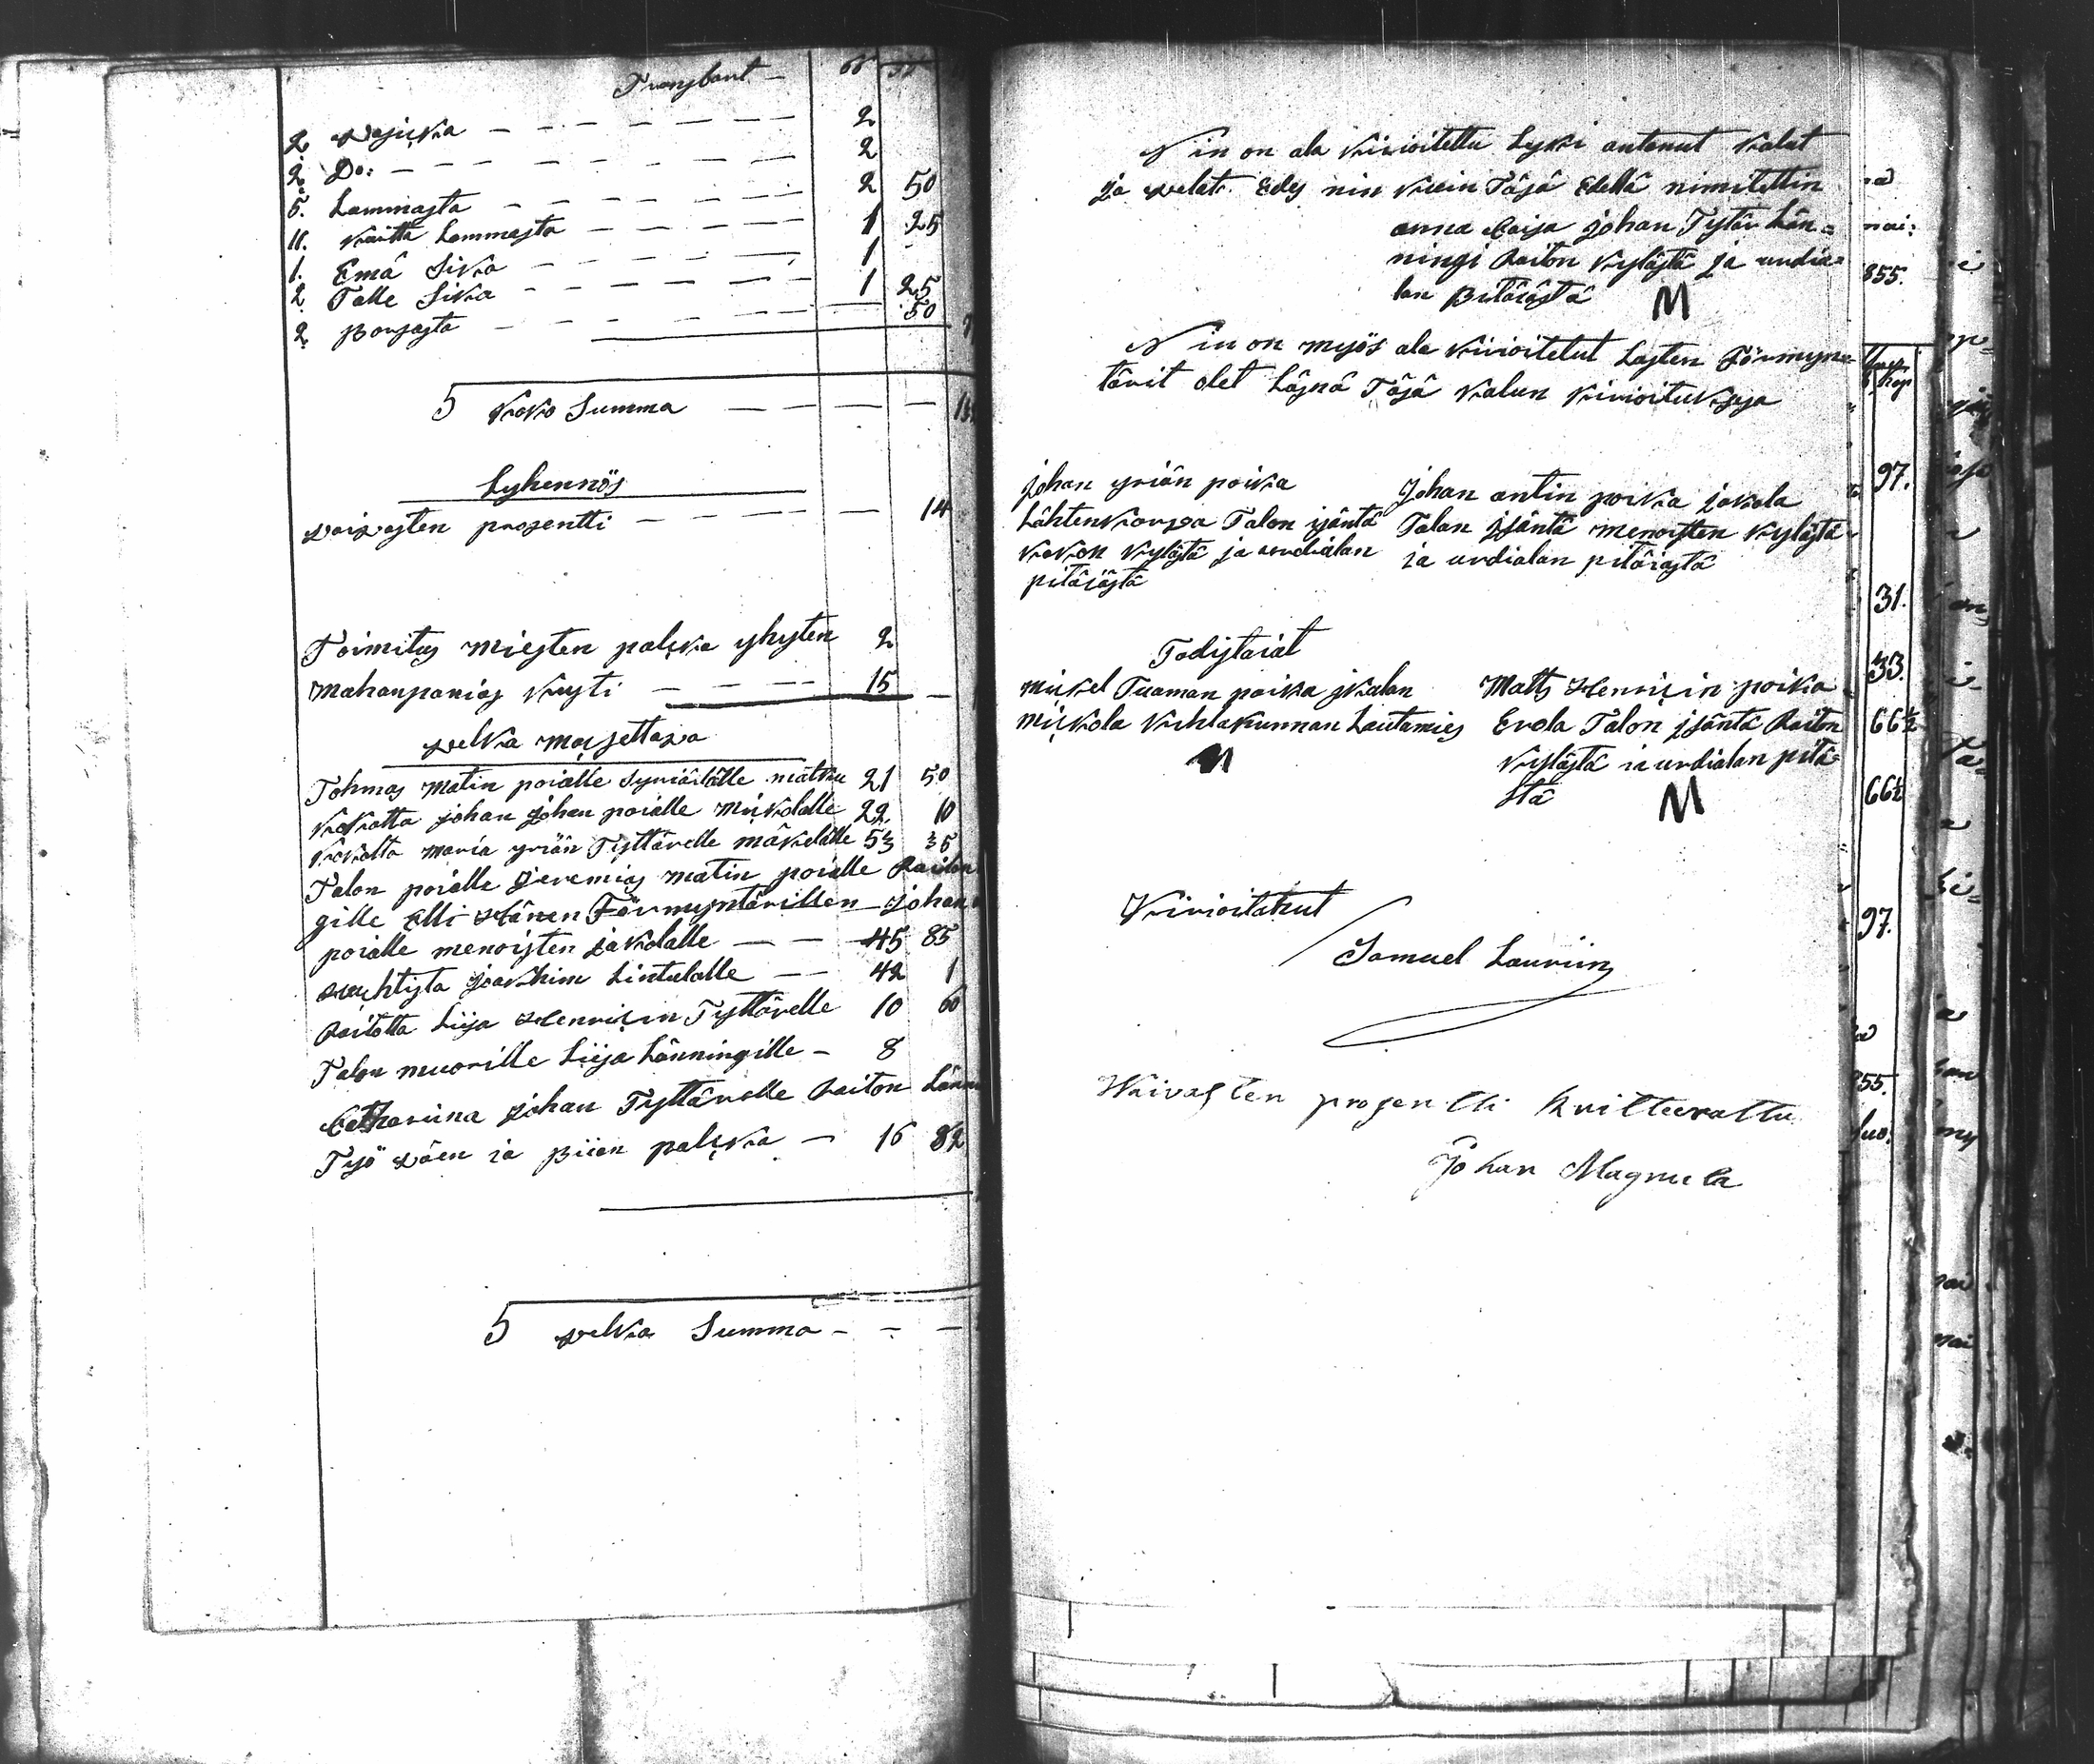 Transport —
2 wasicka — — — — — — 2
2 Do: — — — — — — 2
5. Lammasta — — — — — 2 50
11. Kaitta Lammasta — — — — 1 25
1. Emä Sika — — — — — 1
2. Talle Sika — — — — — 1 25
2 porsasta — — — — 50
S Koko Summa — — — —
Lyhennös
waiwasten prosentti — — — — 14
Toimitus miesten palcka yhyten 2
Mahanpanias Kysti — — — 15 —
welka maxettawa
Tohmas Matin poialle Syriälälle 21 50
Kokolta johan johan poialle Mickolalle 22. 10
Kokolta Maria yriän Tyttärelle mäkelälle 53 35
Talon poialle Jeremias matin poialle Raiton
gille Elli Hänen Förmyntärillen Johan
poialle menoisten jakolalle — — 45 85
joachim Lintulalle — — 42 1
Raitolta Liisa Henricin Tyttärelle 10 60
Talon muorille Liisa Länningille — 8
Catharina johan Tyttärelle Raiton Länn
Työ wäen ia piian palcka — 16 82
S welka Summa — — —
Nin on ala Kirioitettu Lyki antanut Kalut
ja welat. Edes nin Kuin Täsä Edellä nimitettin
anna Caisa johan Tytär Län=
ningi Raiton Kylästä ja urdia=
lan pitäiästä M
Nin on myös ala Kirioitetut Lasten Förmyn=
tärit olet Läsnä Täsä Kalun Kirioituxesa
johan yriän poika
Lähtenkorwa Talon isäntä
Kokon Kylästä ja urdialan
pitäiästä
Johan antin poika jakola
Talan isäntä menoisten Kylästä
ia urdialan pitäiästä
Todistaiat
Mickel Tuaman poika
Mickola Kihlakunnan Lautamies
M
Matts Henricin poika
Erola Talon isäntä Raiton
Kylästä ia urdialan pitä=
stä M
Kirioitanut
Samuel Lauriin
Waivasten prosentti kvitterattu
Johan Magnula
855.
97.
31.
33.
66½
66½
97.
855.